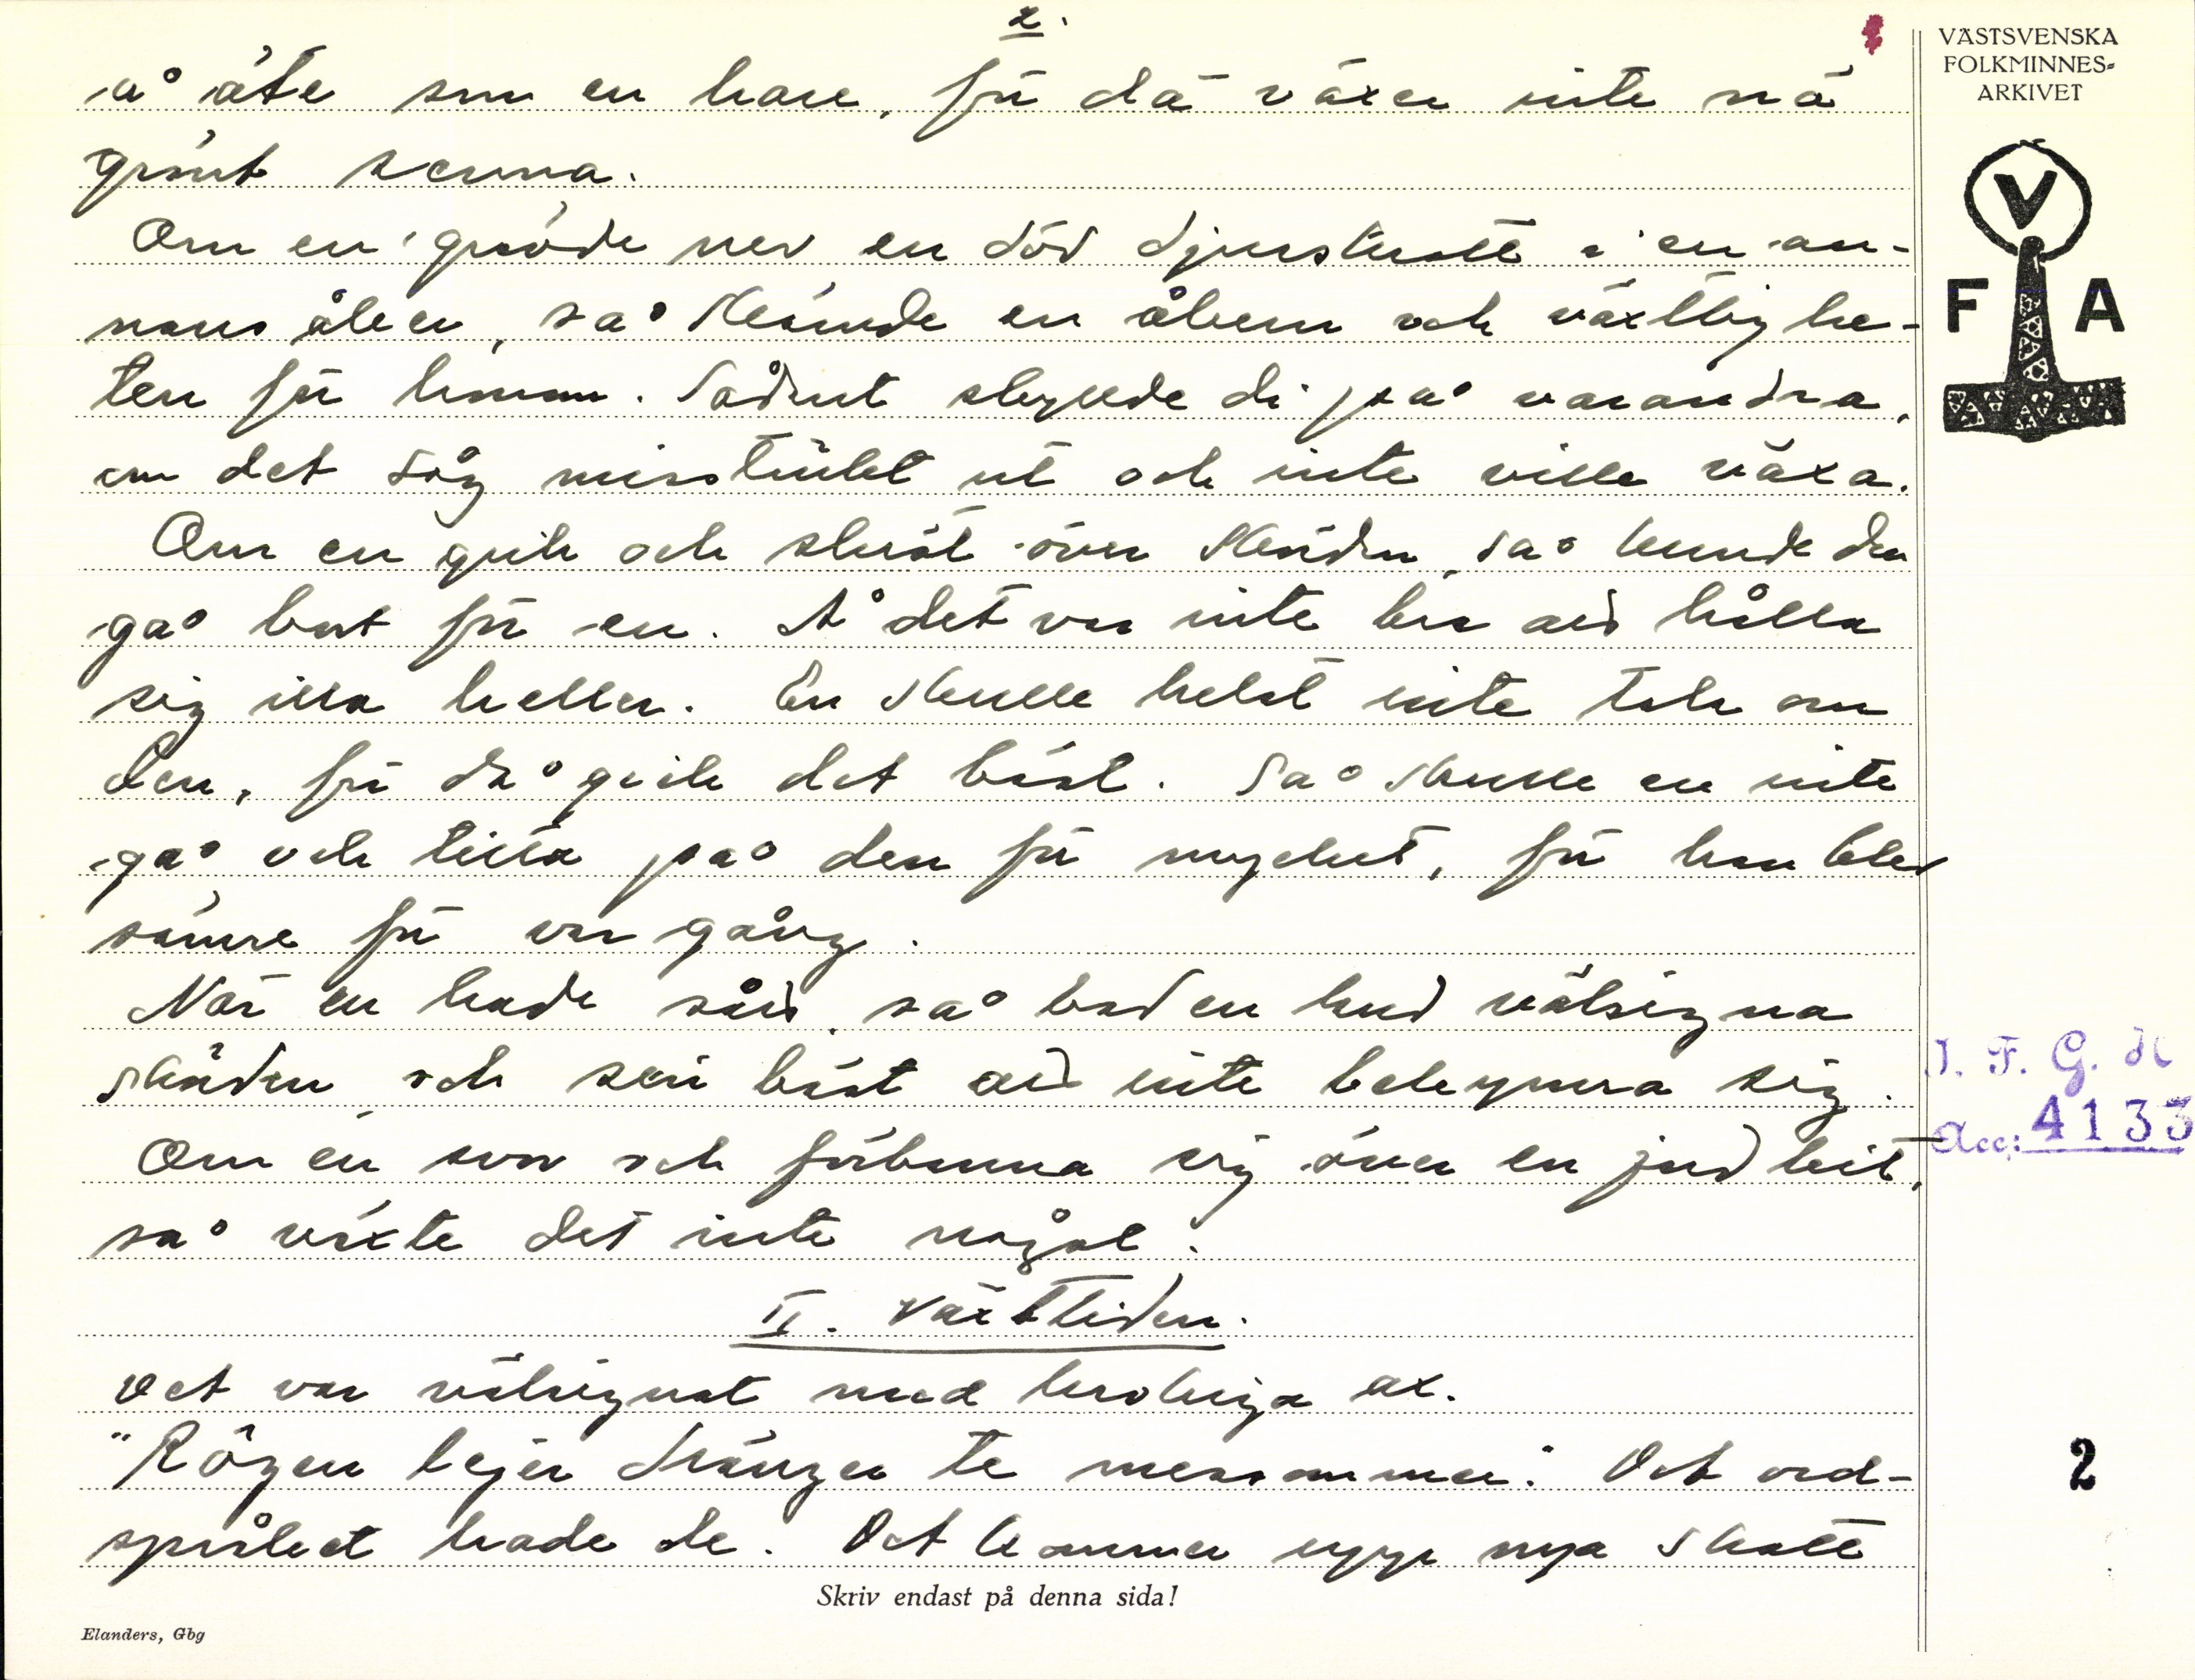 2.
å äte som en hare, för dä växer inte nå
grönt senna.
Om en grävde ner en död djurskrott i en an-
nans åker, så skämde en åkern och växtlighe-
ten för honom. Sådant skyllde di på varandra,
om det såg misstänkt ut och inte ville växa.
Om en gick och skröt över skörden, så kunde den
gå bort för en. Å det var inte bra aid hålla
sig illa heller. En skulle helst inte tala om
den, för då gick det bäst. Så skulle en inte
gå och titta på den för mycket, för han blev
sämre för var gång.
När en hade sått, så bad en Gud välsigna
skörden, och sen bäst aid inte bekymra sig.
Om en svor och förbanna sig över en jordbit,
så växte det inte något.
II. Växttiden.
Det var välsignat med krokiga ax.
"Rögen lejer dränger te messommer". Det ord-
språket hade de. Det kommer upp nya skott
Skriv endast på denna sida!
Elanders, Gbg
VÄSTSVENSKA
FOLKMINNES-
ARKIVET
V
F A
I. F. G. H
Acc: 4133
2